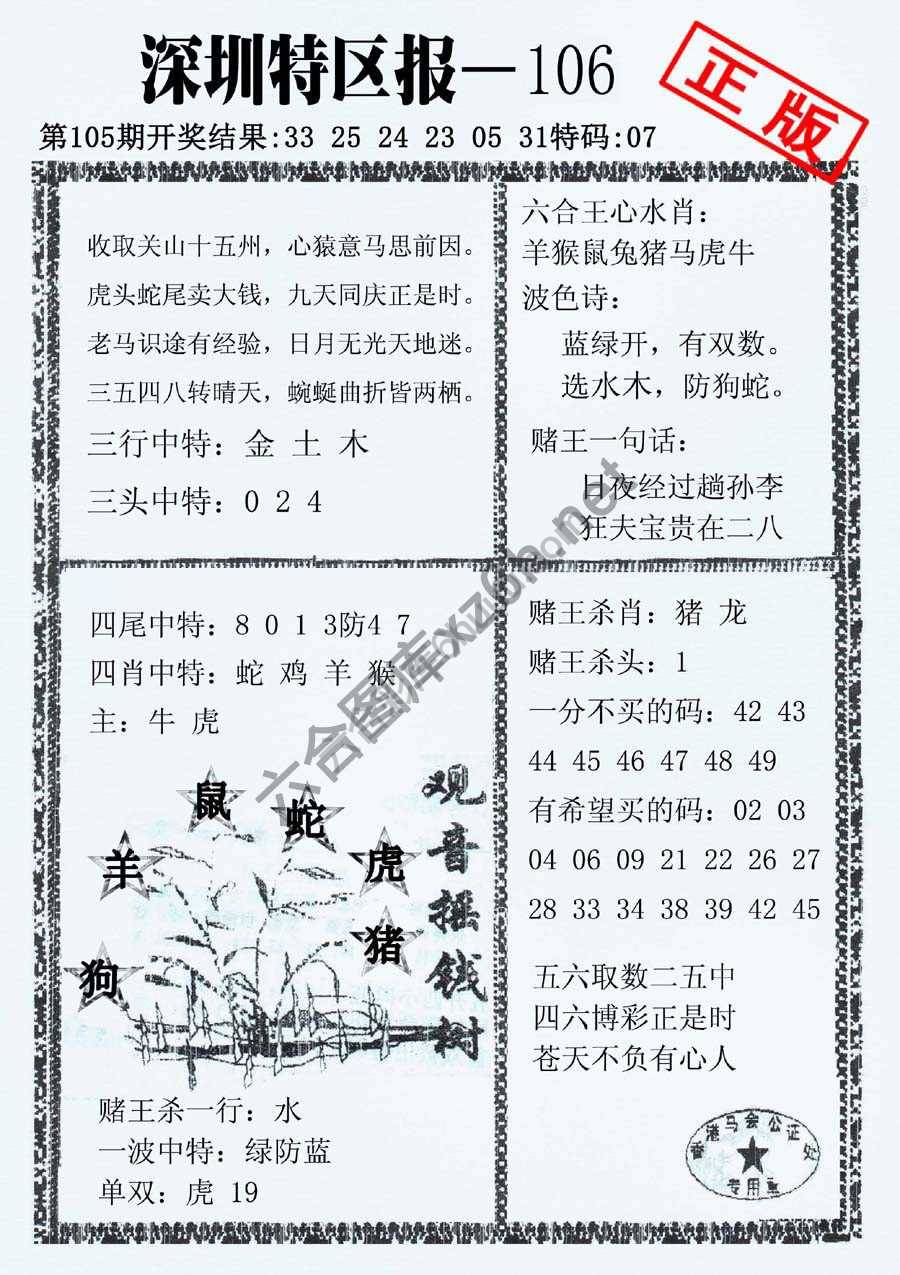 深圳特区报—106
正版
第105期开奖结果:33 25 24 23 05 31特码:07
收取关山十五州，心猿意马思前因。
虎头蛇尾卖大钱，九天同庆正是时。
老马识途有经验，日月无光天地迷。
三五四八转晴天，蜿蜒曲折皆两栖。
三行中特：金 土 木
三头中特：0 2 4
六合王心水肖：
羊猴鼠兔猪马虎牛
波色诗：
蓝绿开，有双数。
选水木，防狗蛇。
赌王一句话：
日夜经过趟孙李
狂夫宝贵在二八
四尾中特：8 0 1 3防4 7
四肖中特：蛇 鸡 羊 猴
主：牛 虎
鼠
蛇
羊
虎
猪
狗
观音摇钱树
赌王杀一行：水
一波中特：绿防蓝
单双：虎 19
赌王杀肖：猪 龙
赌王杀头：1
一分不买的码：42 43
44 45 46 47 48 49
有希望买的码：02 03
04 06 09 21 22 26 27
28 33 34 38 39 42 45
五六取数二五中
四六博彩正是时
苍天不负有心人
香港马会公证处
专用章
六合图库xz6h.net